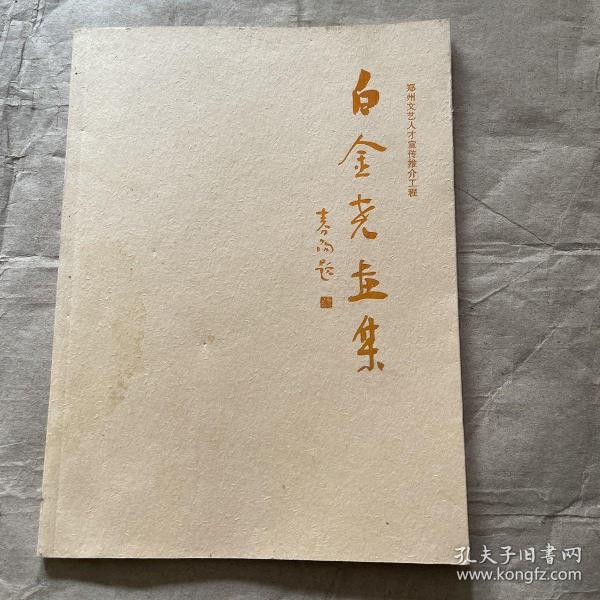 郑州文艺人才宣传推介工程
白金尧画集
春阳题
孔夫子旧书网
www.kongfz.com